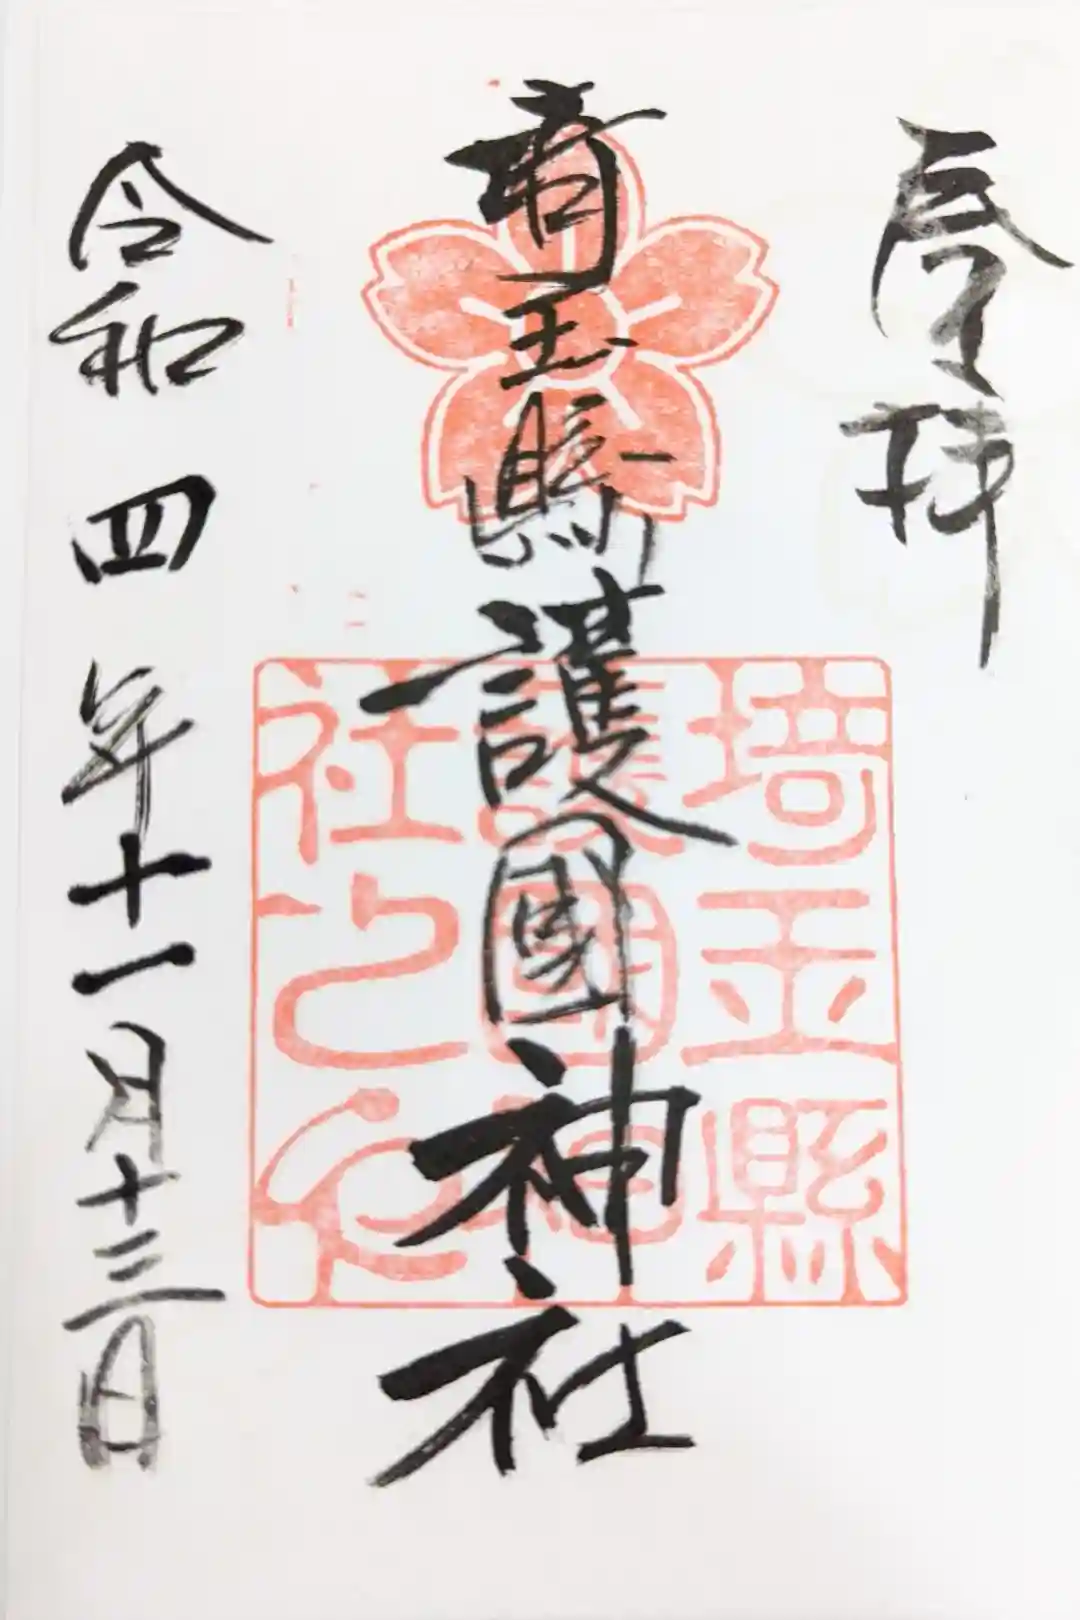 奉拝
埼玉縣護國神社
令和四年十一月十三日
埼玉縣
護國神
社之印